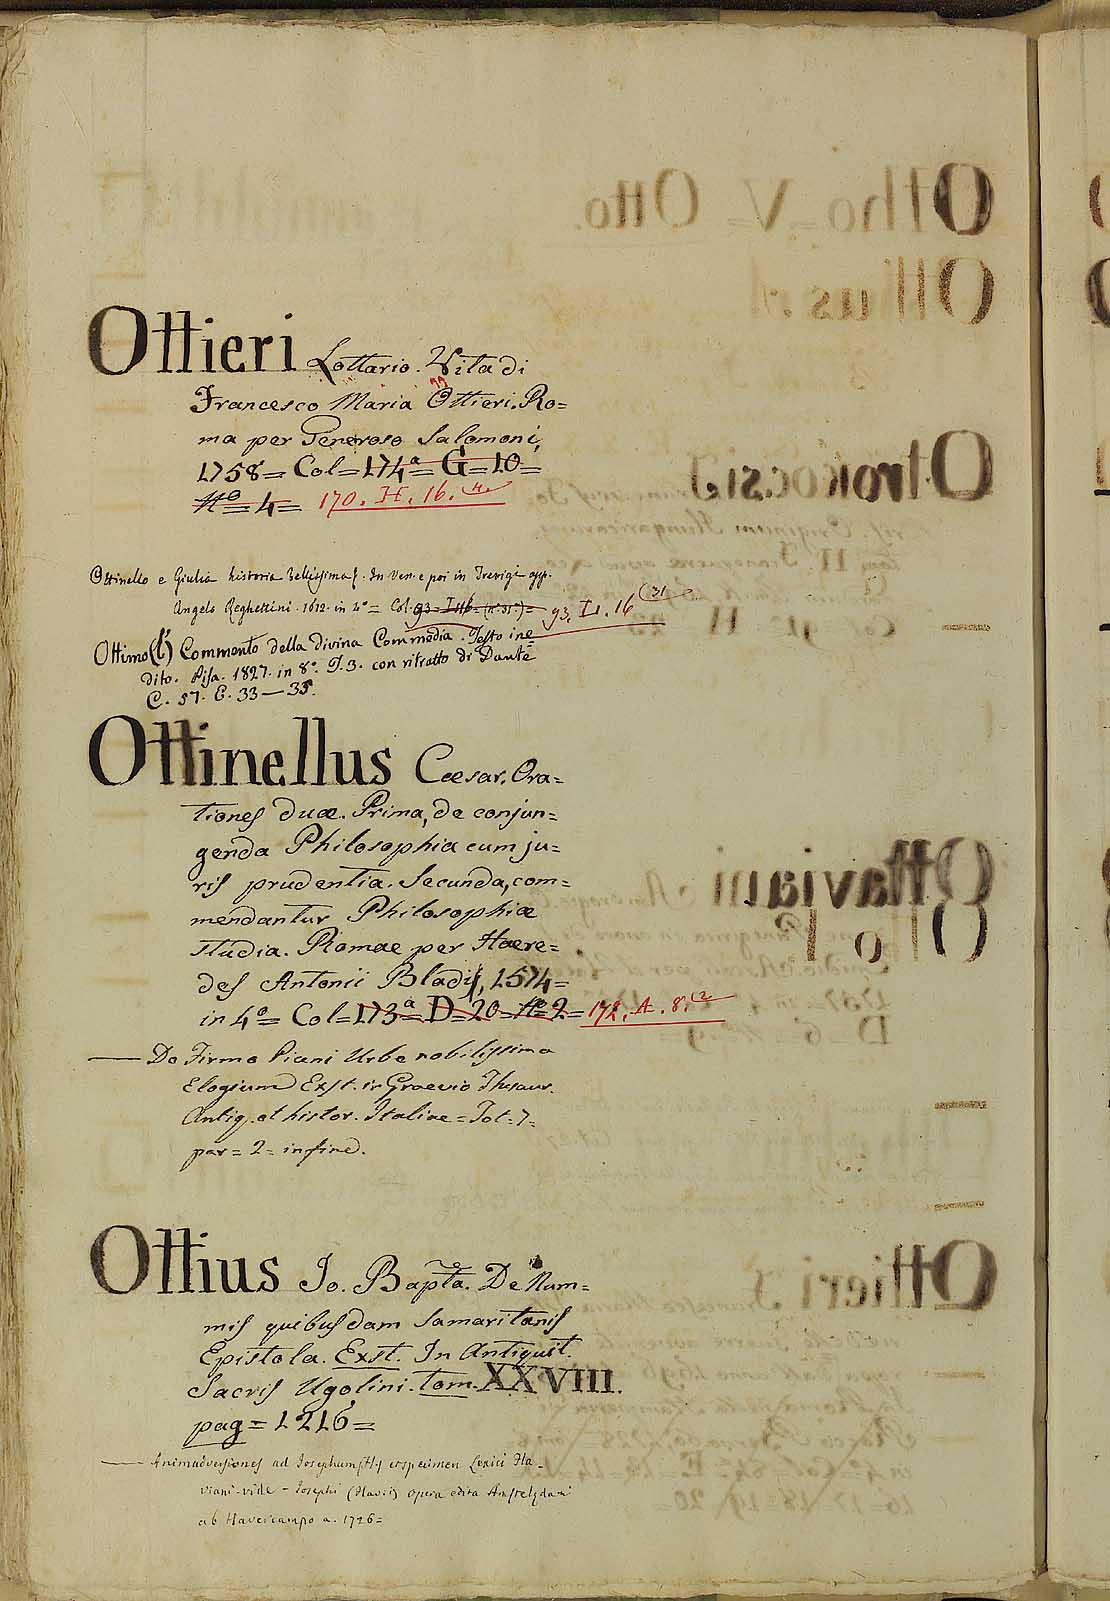 Ottieri Lottario. Vita di
Francesco Maria Ottieri. Ro=
ma per Generoso Salomoni,
1758= Col= 174ª= G= 10=
Nº= 4= 170. H. 16. 4.
Ottinello e Giulia historia bellissima. In Ven. e poi in Trevigi app.
Angelo Reghettini. 1612. in 4º= Col. 93= I. 16= (nº 31º)= 93. I. 16 (31
Ottimo (l') Commento della Divina Commedia. Testo ine
dito. Pisa. 1827. in 8º. T. 3. con ritratto di Dante
C. 57. E. 33—35.
Ottinellus Caesar. Ora=
tiones duæ. Prima, de conjun=
genda Philosophia cum ju=
ris prudentia. Secunda, com=
mendantur Philosophiæ
studia. Romae per Haere=
des Antonii Bladij, 1574=
in 4º= Col= 173ª D= 20= Nº 2= 172. A. 8. 2
— De Firmo Piceni Urbe nobilissima
Elogium Exst. in Graevio Thesaur.
Antiq. et histor. Italiae= Tot= 7=
par= 2= in fine.
Ottius Jo. Bapta. De Num=
mis quibusdam Samaritanis
Epistola. Exst. In Antiquit.
Sacris Ugolini. tom. XXVIII.
pag= 1216=
— Animadversiones ad Josephum et specimen Lexici Fla-
viani vide - Josephi (Flavii) opera edita Amstelodami
ab Havercampo a. 1726=